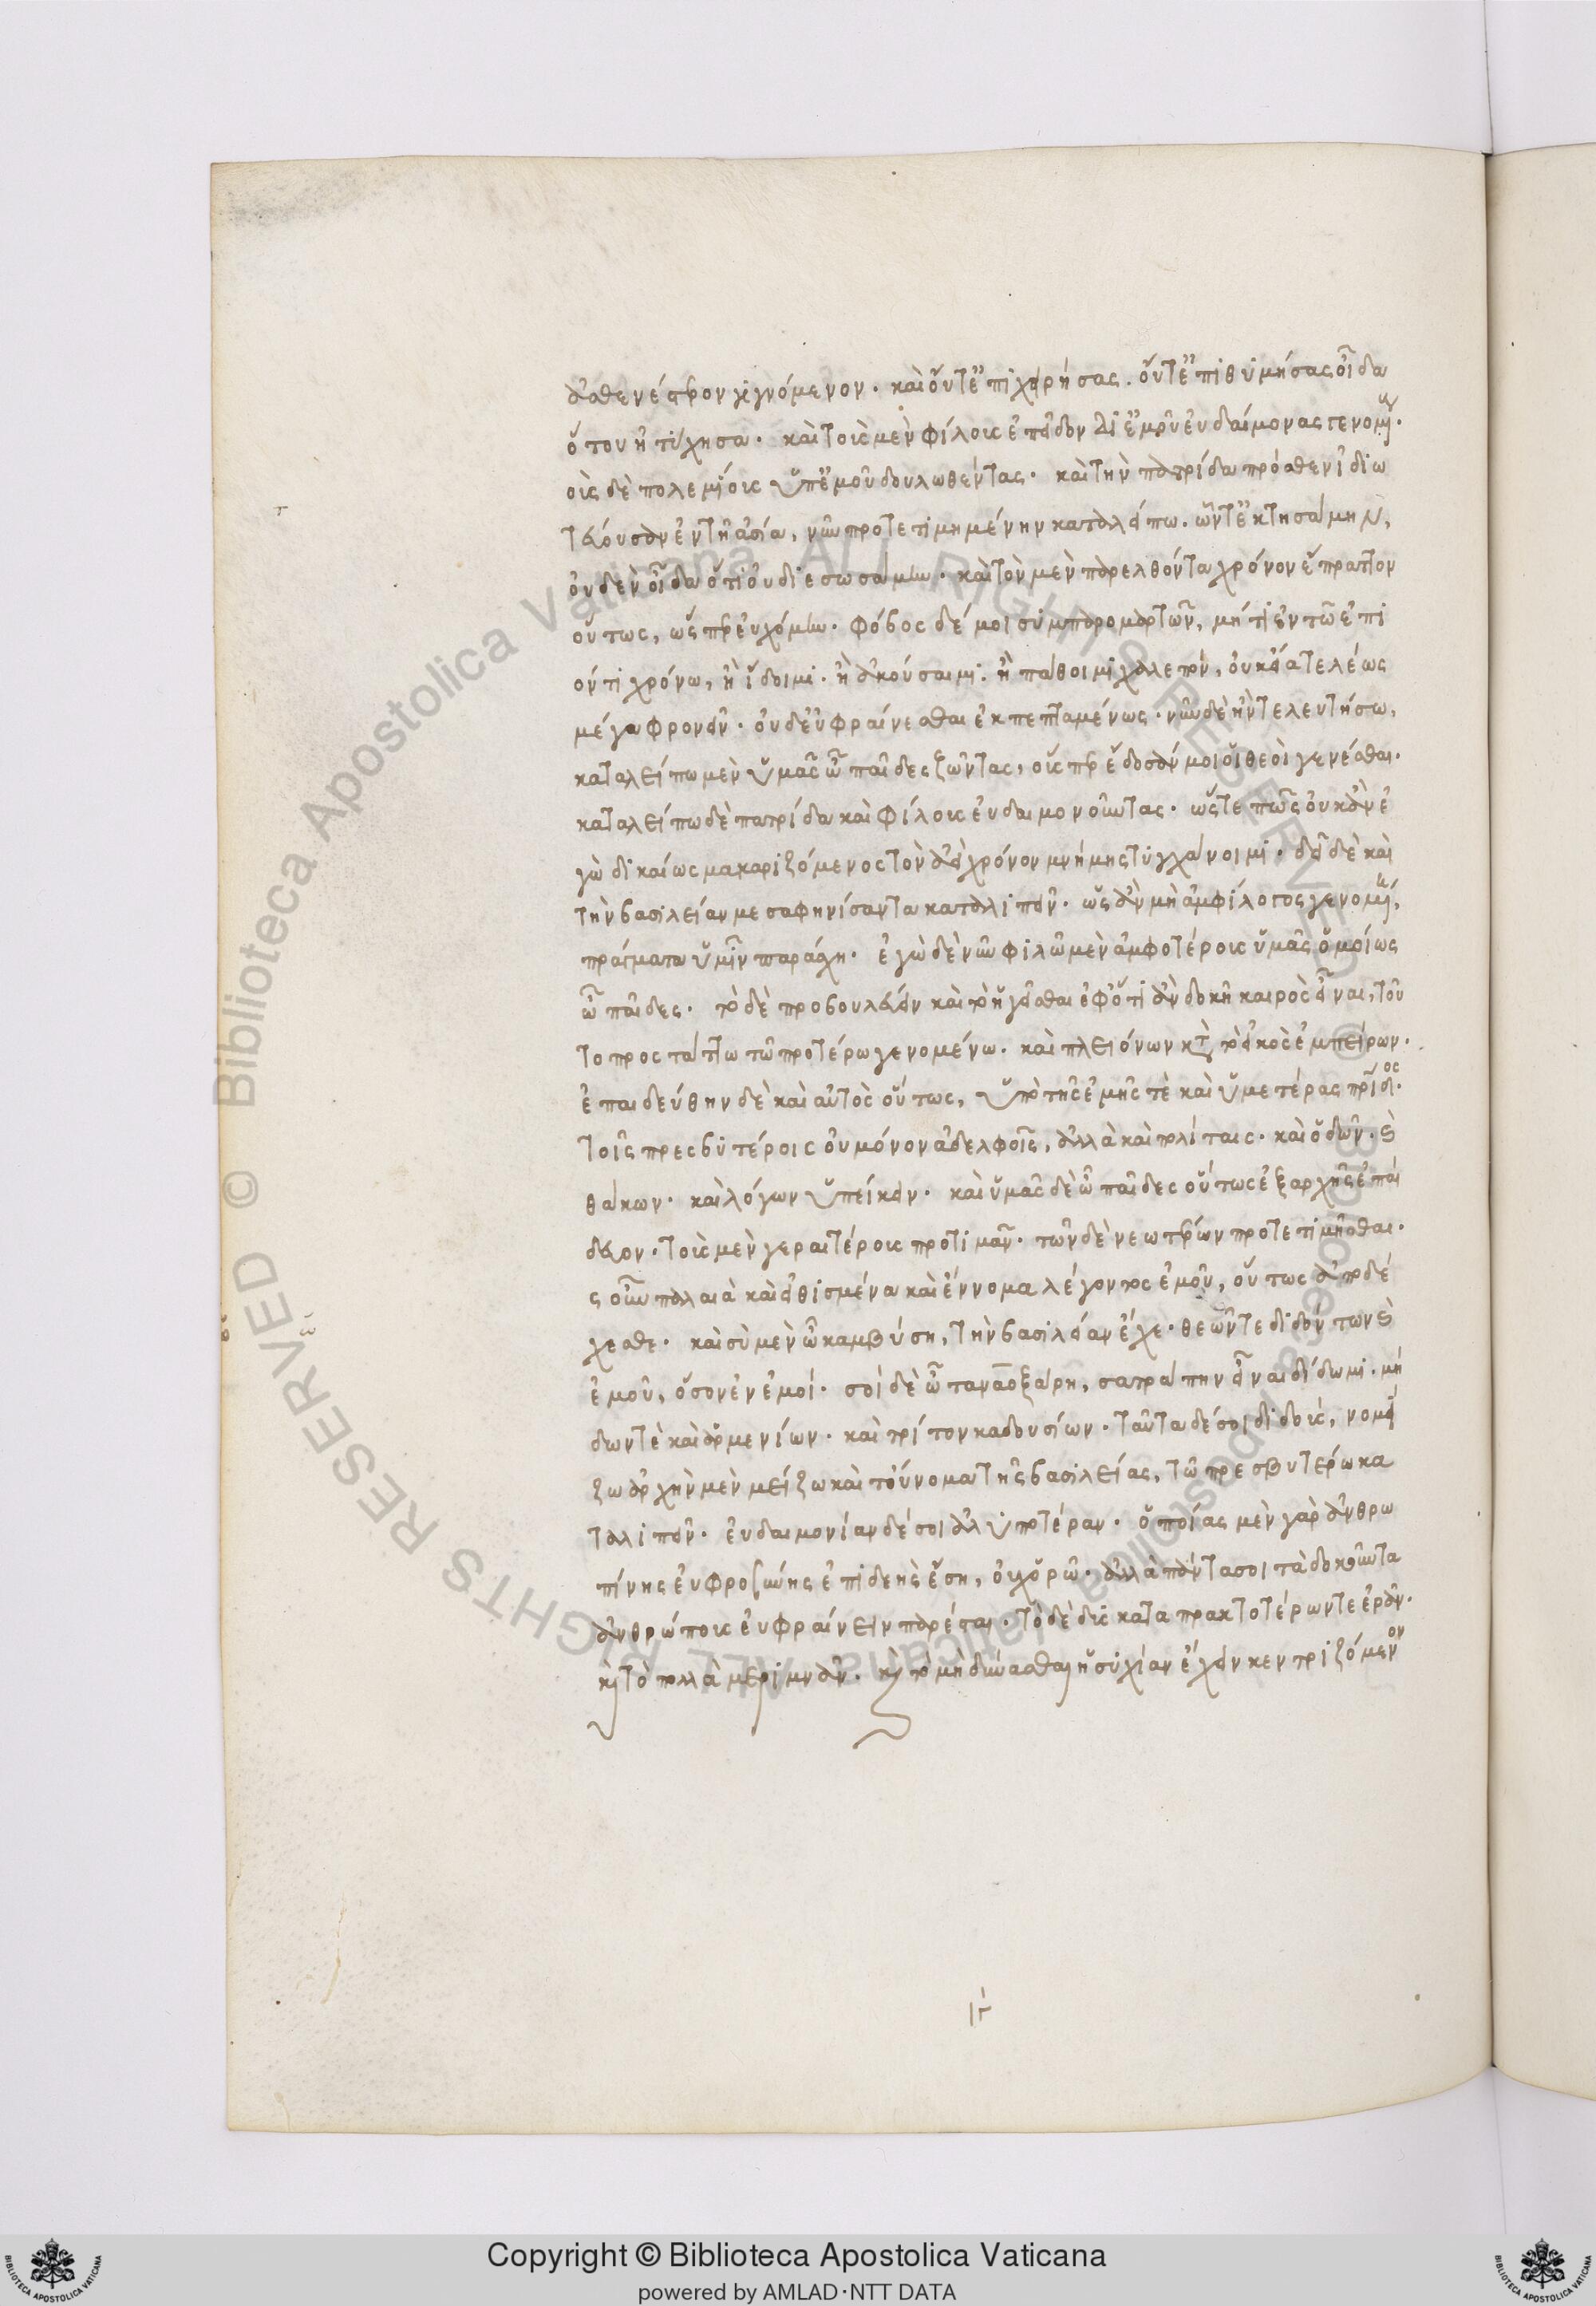 ἀσθενέστερον γιγνόμενον. καὶ οὔτ' ἐπιχειρήσας. οὔτ' ἐπιθυμήσας οἶδα
ὅτου ἠτύχησα. καὶ τοὺς μὲν φίλους ἐπεῖδον δι' ἐμοῦ εὐδαίμονας γενομένους.
οὺς δὲ πολεμίους ὑπ' ἐμοῦ δουλωθέντας. καὶ τὴν πατρίδα πρόσθεν ἰδιω
τεύουσαν ἐν τῆ ἀσία, νῦν προτετιμημένην καταλείπω. ὧν τ' ἐκτησάμην,
οὐδὲν οἶδα ὅτι οὐ διεσωσάμην. καὶ τὸν μὲν παρελθόντα χρόνον ἔπραττον
οὕτως, ὥσπερ εὐχόμην. φόβος δέ μοι συμπαρομαρτῶν, μή τι ἐν τῶ ἐπι
όντι χρόνω, ἢ ἴδοιμι. ἢ ἀκούσαιμι. ἢ πάθοιμι χαλεπόν, οὐκ εἴα τελέως
μέγα φρονεῖν. οὐδ' εὐφραίνεσθαι ἐκπεπταμένως. νῦν δὲ ἢν τελευτήσω,
καταλείπω μὲν ὑμᾶς ὦ παῖδες ζῶντας, οὕσπερ ἔδοσάν μοι οἱ θεοὶ γενέσθαι.
καταλείπω δὲ πατρίδα καὶ φίλους εὐδαιμονοῦντας. ὥστε πῶς οὐκ ἂν ἐ
γὼ δικαίως μακαριζόμενος τὸν ἀεὶ χρόνον μνήμης τυγχάνοιμι. δεῖ δὲ καὶ
τὴν βασιλείαν με σαφηνίσαντα καταλιπεῖν. ὡς ἂν μὴ ἀμφίλογος γενομένη,
πράγματα ὑμῖν παράσχη. ἐγὼ δὲ νῦν φιλῶ μὲν ἀμφοτέρους ὑμᾶς ὁμοίως
ὦ παῖδες. τὸ δὲ προβουλεύειν καὶ τὸ ἡγεῖσθαι ἐφ' ὅτι ἂν δοκῆ καιρὸς εἶναι, τοῦ
το προστάττω τῶ προτέρω γενομένω. καὶ πλειόνων κατὰ τὸ εἰκὸς ἐμπείρων.
ἐπαιδεύθην δὲ καὶ αὐτὸς οὕτως, ὑπὸ τῆς ἐμῆς τὲ καὶ ὑμετέρας πατρίδος.
τοῖς πρεσβυτέροις οὐ μόνον ἀδελφοῖς, ἀλλὰ καὶ πολίταις. καὶ ὁδῶν. καὶ
θάκων. καὶ λόγων ὑπείκειν. καὶ ὑμᾶς δὲ ὦ παῖδες οὕτως ἐξ αρχῆς ἐπαί
δευον. τοὺς μὲν γεραιτέρους προτιμᾶν. τῶν δὲ νεωτέρων προτετιμῆσθαι.
ς οὖν παλαιὰ καὶ εἰθισμένα καὶ ἔννομα λέγοντος ἐμοῦ, οὕτως ἀποδέ
χεσθε. καὶ σὺ μὲν ὦ καμβύση, τὴν βασιλείαν ἔχε. θεῶν τε διδόντων καὶ
ἐμοῦ, ὅσον ἐν ἐμοί. σοὶ δὲ ὦ ταναοξάρη, σατράπην εἶναι δίδωμι. μή
δων τὲ καὶ ἀρμενίων. καὶ τρίτον καδουσίων. ταῦτα δέ σοι διδοὺς, νομί
ζω ἀρχὴν μὲν μείζω καὶ τοὔνομα τῆς βασιλείας, τῶ πρεσβυτέρω κα
ταλιπεῖν. εὐδαιμονίαν δέ σοι ἀλυποτέραν. ὁποίας μὲν γὰρ ἀνθρω
πίνης εὐφροσύνης ἐπιδεὴς ἔση, οὐχ ὁρῶ. ἀλλὰ πάντα σοι τὰ δοκοῦντα
ἀνθρώπους εὐφραίνειν παρέσται. τὸ δὲ δυσκαταπρακτοτέρων τε ἐρᾶν.
καὶ τὸ πολλὰ μεριμνᾶν. καὶ τὸ μὴ δύνασθαι ἡσυχίαν ἔχειν κεντριζόμενον